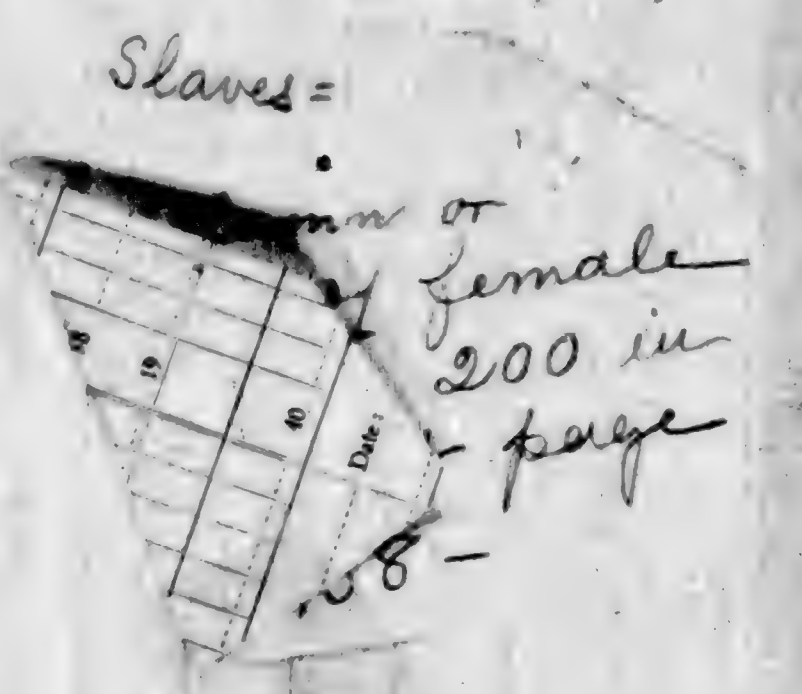 Slaves =
or
female
200 in
page
8 -
18
19
40
Date: